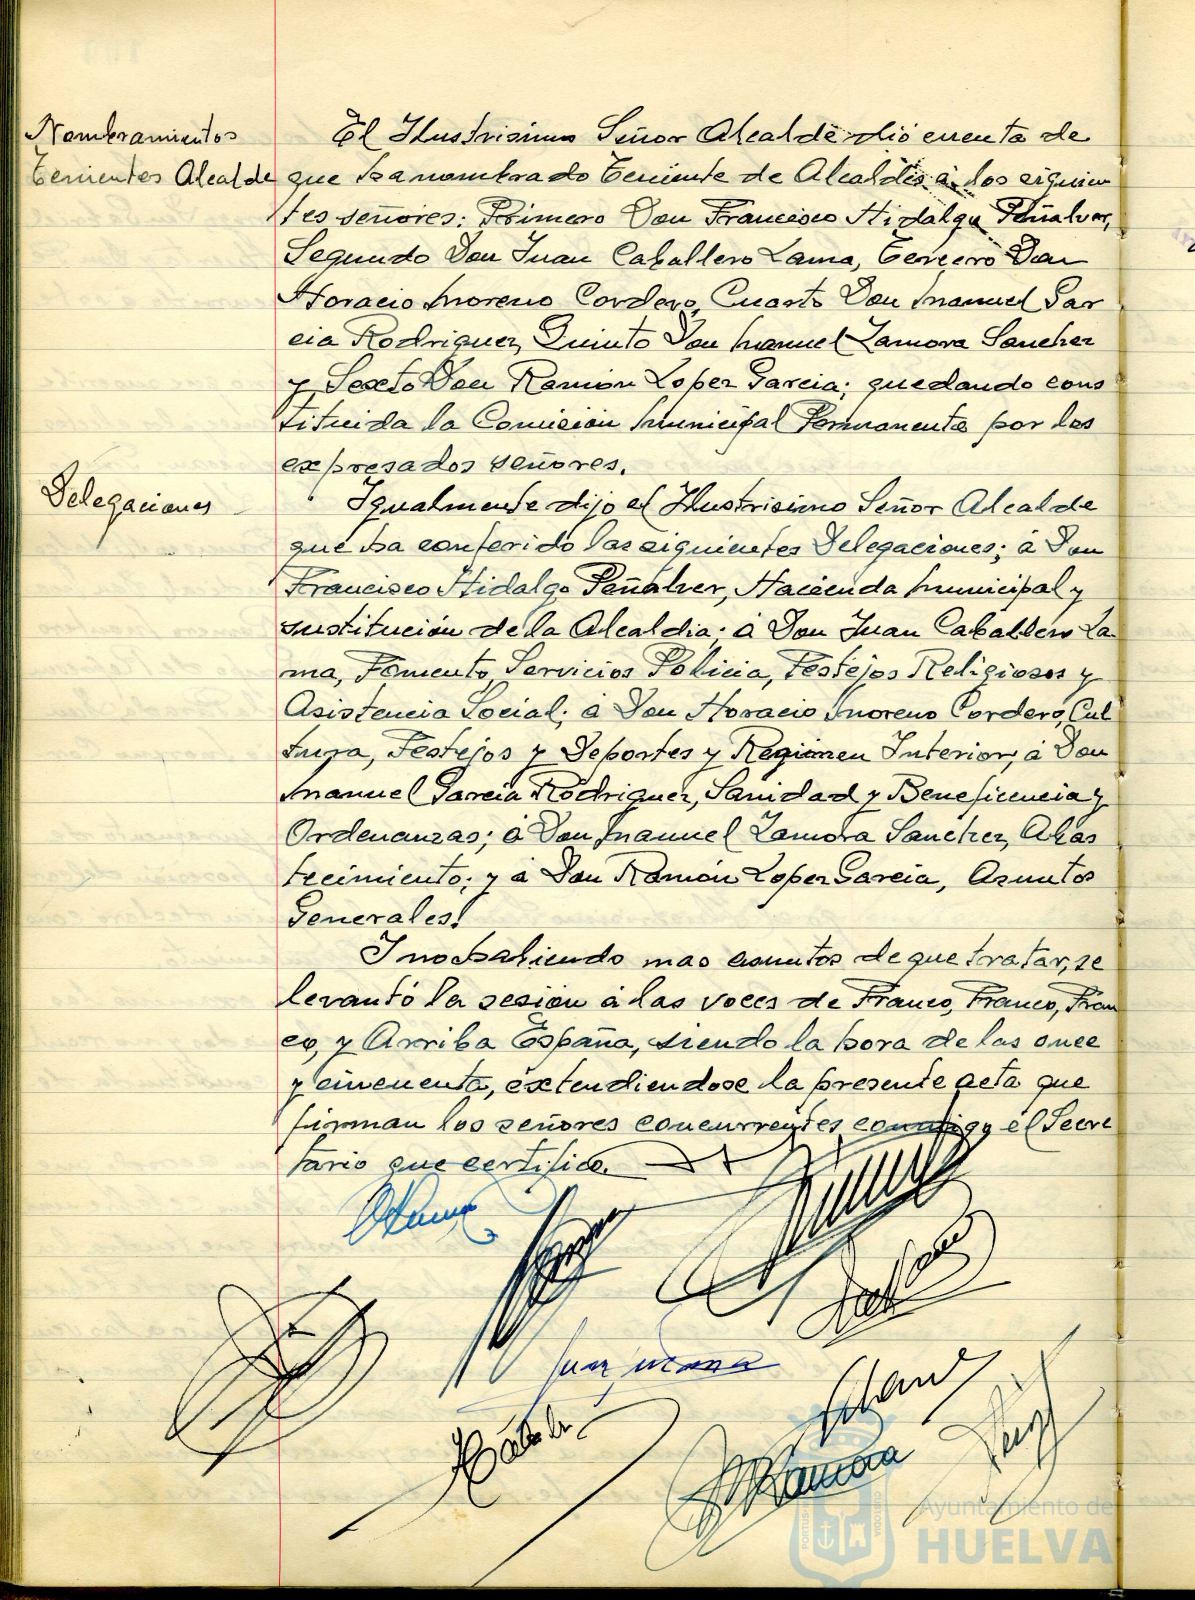 Nombramientos
Tenientes Alcalde
El Ilustrisimo Señor Alcalde dió cuenta de
que ha nombrado Teniente de Alcaldes á los siguien
tes señores: Primero Don Francisco Hidalgo Peñalver,
Segundo Don Juan Caballero Lama, Tercero Don
Horacio Moreno Cordero, Cuarto Don Manuel Gar
cia Rodriguez, Quinto Don Manuel Zamora Sanchez
y Sexto Don Ramón Lopez Garcia; quedando cons
tituida la Comisión Municipal Permanente por los
expresados señores.
Delegaciones
Igualmente dijo el Ilustrisimo Señor Alcalde
que ha conferido las siguientes Delegaciones; á Don
Francisco Hidalgo Peñalver, Hacienda Municipal y
sustitución de la Alcaldia; á Don Juan Caballero La
ma, Fomento, Servicios Policia, Festejos Religiosos y
Asistencia Social; á Don Horacio Moreno Cordero, Cul
tura, Festejos y Deportes y Regimen Interior; á Don
Manuel Garcia Rodriguez, Sanidad y Beneficencia y
Ordenanzas; á Don Manuel Zamora Sanchez, Abas
tecimiento; y á Don Ramón Lopez Garcia, Asuntos
Generales.
I no habiendo mas asuntos de que tratar, se
levantó la sesión á las voces de Franco, Franco, Fran
co, y Arriba España, siendo la hora de las once
y cincuenta, extendiendose la presente acta que
firman los señores concurrentes conmigo el Secre
tario que certifico.
Zamora
Ayuntamiento de
HUELVA